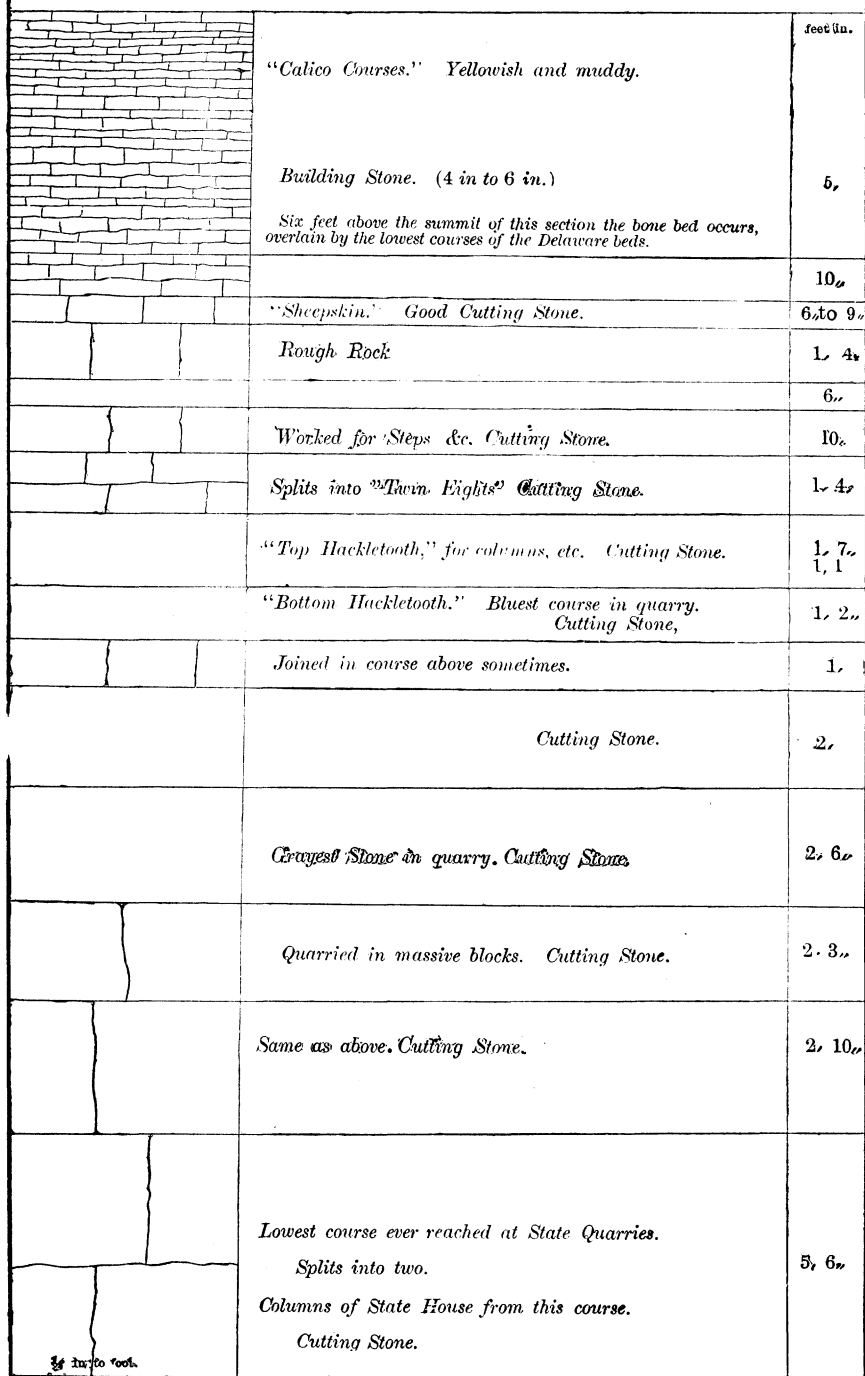 feet in.
"Calico Courses." Yellowish and muddy.
Building Stone. (4 in to 6 in.)
5,
Six feet above the summit of this section the bone bed occurs,
overlain by the lowest courses of the Delaware beds.
10,,
"Sheepskin." Good Cutting Stone.
6,,to 9,,
Rough Rock
1, 4,,
6,,
Worked for Steps &c. Cutting Stone.
10,,
Splits into "Twin Eights" Cutting Stone.
1, 4,,
"Top Hackletooth," for columns, etc. Cutting Stone.
1, 7,,
1, 1
"Bottom Hackletooth." Bluest course in quarry.
Cutting Stone,
1, 2,,
Joined in course above sometimes.
1,
Cutting Stone.
2,
Grayest Stone in quarry. Cutting Stone.
2, 6,,
Quarried in massive blocks. Cutting Stone.
2. 3,,
Same as above. Cutting Stone.
2, 10,,
Lowest course ever reached at State Quarries.
Splits into two.
5, 6,,
Columns of State House from this course.
Cutting Stone.
in to foot.